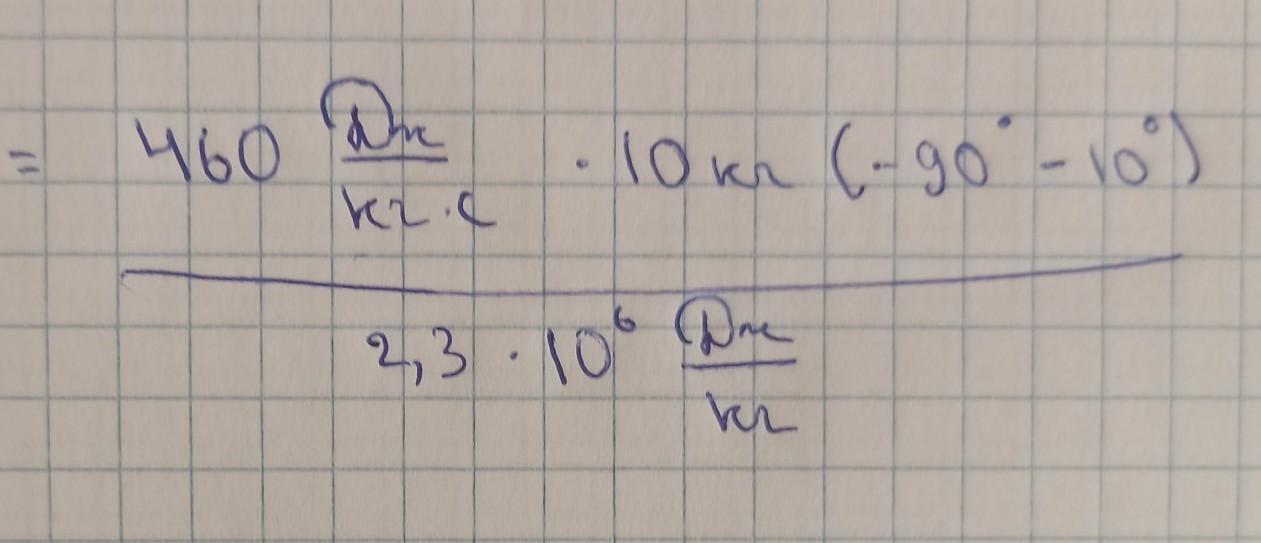 = 460 Дж/кг·с · 10 кг (-90° - 10°)
2,3 · 10⁶ Дж/кг